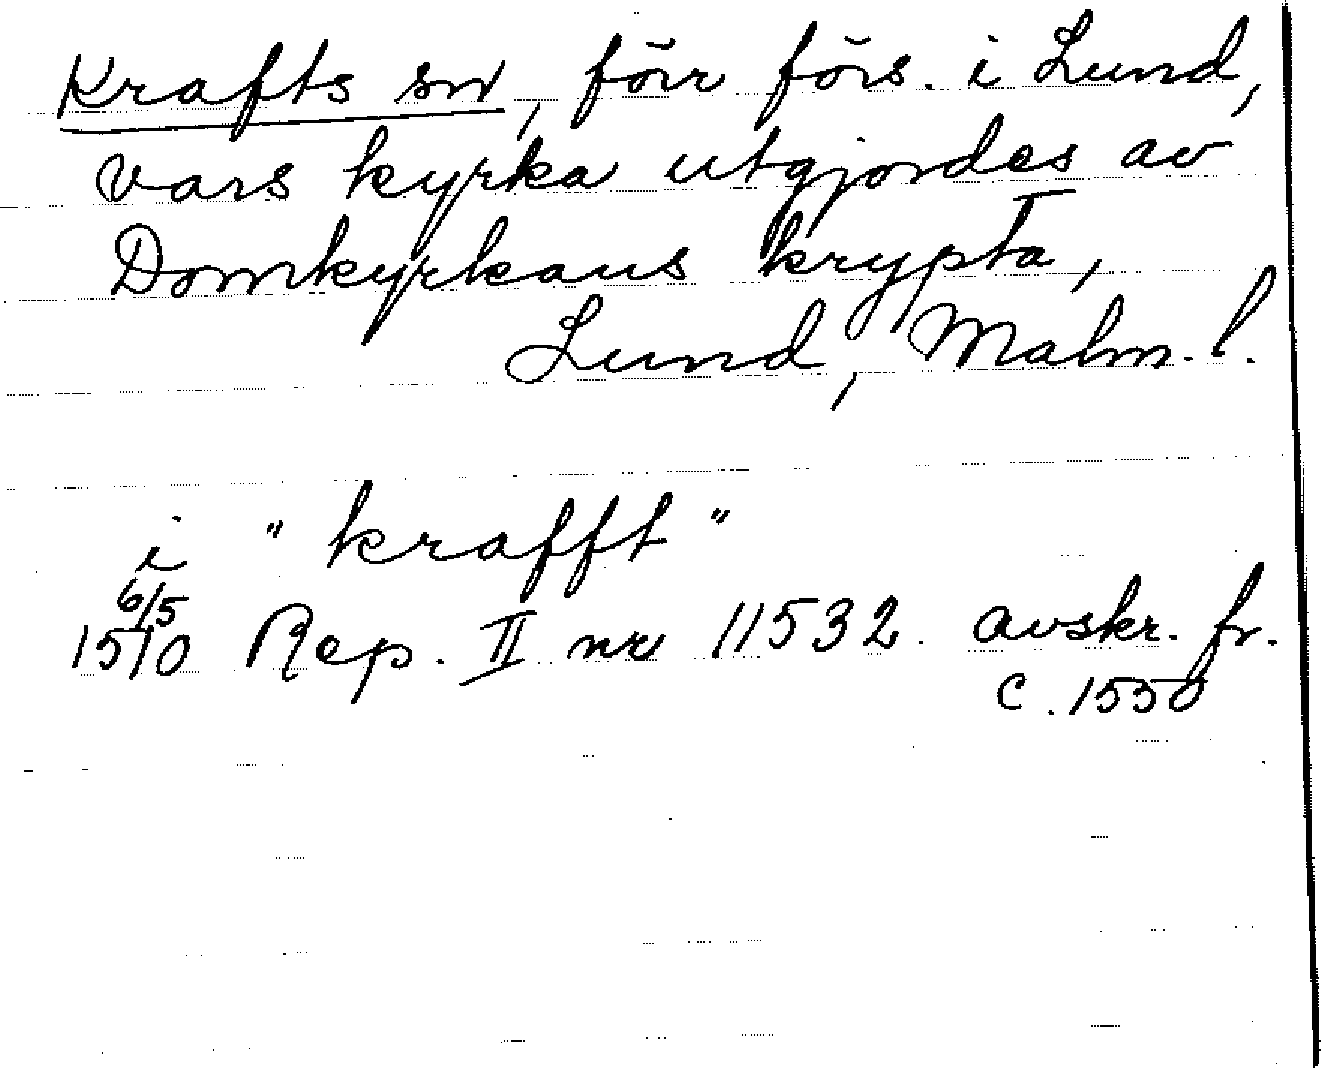 Krafts sn, förr förs. i Lund,
vars kyrka utgjordes av
Domkyrkans krypta,
Lund, Malm. l.
i "krafft"
6/5
1510 Rep. II nr 11532. avskr. fr.
c. 1550